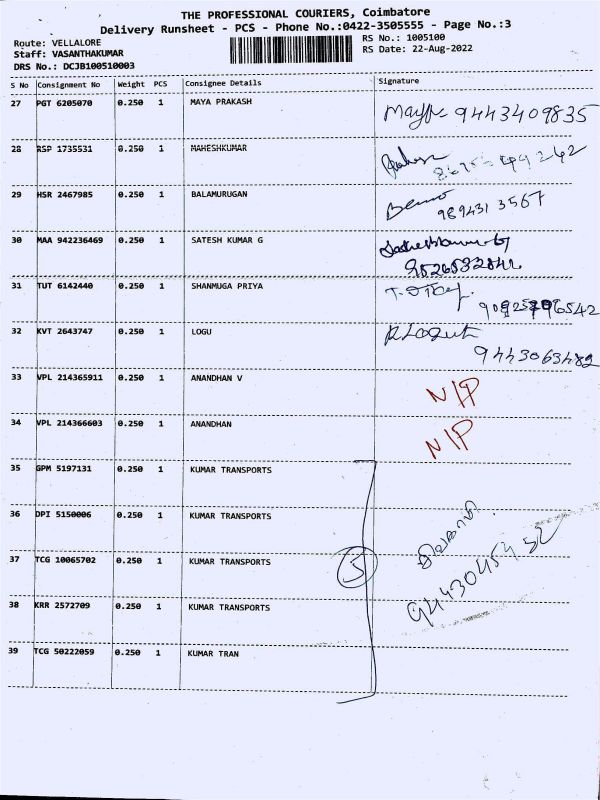 THE PROFESSIONAL COURIERS, Coimbatore
Delivery Runsheet - PCS - Phone No.:0422-3505555 - Page No.:3
Route: VELLALORE
RS No.: 1005100
Staff: VASANTHAKUMAR
RS Date: 22-Aug-2022
DRS No.: DCJB100510003
S No Consignment No Weight PCS Consignee Details Signature
27 PGT 6205070 0.250 1 MAYA PRAKASH 9443409835
28 RSP 1735531 0.250 1 MAHESHKUMAR
29 HSR 2467985 0.250 1 BALAMURUGAN
9894313567
30 MAA 942236469 0.250 1 SATESH KUMAR G
31 TUT 6142440 0.250 1 SHANMUGA PRIYA
32 KVT 2643747 0.250 1 LOGU
9443063482
33 VPL 214365911 0.250 1 ANANDHAN V N/P
34 VPL 214366603 0.250 1 ANANDHAN N/P
35 GPM 5197131 0.250 1 KUMAR TRANSPORTS
36 DPI 5150006 0.250 1 KUMAR TRANSPORTS
37 TCG 10065702 0.250 1 KUMAR TRANSPORTS 5
38 KRR 2572709 0.250 1 KUMAR TRANSPORTS
39 TCG 50222059 0.250 1 KUMAR TRAN